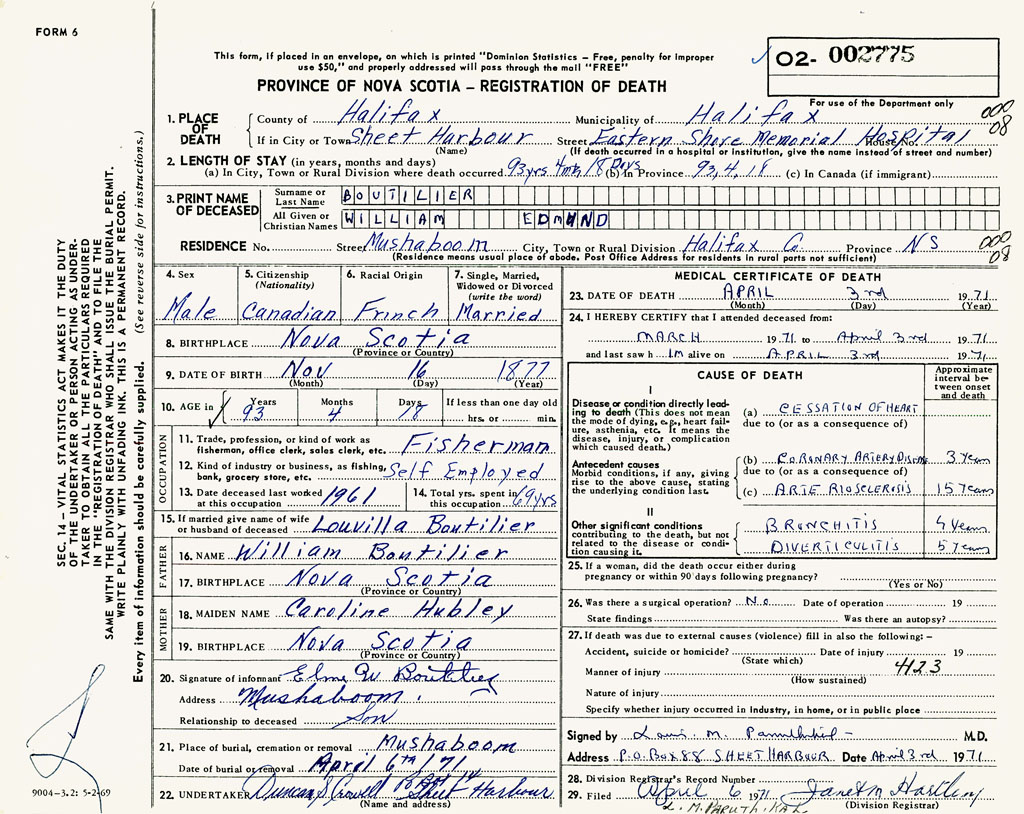 FORM 6
This form, if placed in an envelope, on which is printed "Dominion Statistics – Free, penalty for improper
use $50," and properly addressed will pass through the mail "FREE"
O2- 002775
PROVINCE OF NOVA SCOTIA – REGISTRATION OF DEATH
For use of the Department only
1. PLACE OF DEATH County of Halifax Municipality of Halifax 000 08
If in City or Town Sheet Harbour (Name) Street Eastern Shore Memorial Hospital House No.
(If death occurred in a hospital or institution, give the name instead of street and number)
2. LENGTH OF STAY (in years, months and days)
(a) In City, Town or Rural Division where death occurred 93 yrs 4 mts 18 Days (b) In Province 93, 4, 18 (c) In Canada (if immigrant)
3. PRINT NAME OF DECEASED Surname or Last Name BOUTILIER
All Given or Christian Names WILLIAM EDMUND
RESIDENCE No. Street Mushaboom City, Town or Rural Division Halifax Co. Province NS 000 08
(Residence means usual place of abode. Post Office Address for residents in rural parts not sufficient)
4. Sex Male
5. Citizenship (Nationality) Canadian
6. Racial Origin Frinch
7. Single, Married, Widowed or Divorced (write the word) Married
8. BIRTHPLACE Nova Scotia
(Province or Country)
9. DATE OF BIRTH Nov 16 1877
(Month) (Day) (Year)
10. AGE in Years 93 Months 4 Days 18 If less than one day old hrs. or min.
OCCUPATION
11. Trade, profession, or kind of work as fisherman, office clerk, sales clerk, etc. Fisherman
12. Kind of industry or business, as fishing, bank, grocery store, etc. Self Employed
13. Date deceased last worked at this occupation 1961
14. Total yrs. spent in this occupation 69 yrs
15. If married give name of wife or husband of deceased Louvilla Boutilier
FATHER
16. NAME William Boutilier
17. BIRTHPLACE Nova Scotia
(Province or Country)
MOTHER
18. MAIDEN NAME Caroline Hubley
19. BIRTHPLACE Nova Scotia
(Province or Country)
20. Signature of informant
Address Mushaboom.
Relationship to deceased Son
21. Place of burial, cremation or removal Mushaboom
Date of burial or removal April 6th/71
22. UNDERTAKER Duncan S Crowell Sheet Harbour
(Name and address)
MEDICAL CERTIFICATE OF DEATH
23. DATE OF DEATH APRIL 3rd 1971
(Month) (Day) (Year)
24. I HEREBY CERTIFY that I attended deceased from:
MARCH 1971 to April 3rd 1971
and last saw h im alive on APRIL 3rd 1971
CAUSE OF DEATH
Approximate interval between onset and death
I
Disease or condition directly leading to death (This does not mean the mode of dying, e.g., heart failure, asthenia, etc. It means the disease, injury, or complication which caused death.)
(a) CESSATION OF HEART
due to (or as a consequence of)
Antecedent causes
Morbid conditions, if any, giving rise to the above cause, stating the underlying condition last.
(b) CORONARY ARTERY DISEASE 3 Years
due to (or as a consequence of)
(c) ARTERIOSCLEROSIS 15 Years
II
Other significant conditions contributing to the death, but not related to the disease or condition causing it.
BRONCHITIS 4 Years
DIVERTICULITIS 5 Years
25. If a woman, did the death occur either during pregnancy or within 90 days following pregnancy?
(Yes or No)
26. Was there a surgical operation? No Date of operation 19
State findings Was there an autopsy?
27. If death was due to external causes (violence) fill in also the following: –
Accident, suicide or homicide? Date of injury 19
(State which)
Manner of injury 4123
(How sustained)
Nature of injury
Specify whether injury occurred in industry, in home, or in public place
Signed by M. M.D.
Address P.O. Box 88 SHEET HARBOUR Date April 3rd 1971
28. Division Registrar's Record Number
29. Filed April 6 1971 Janet M Hartling
(Division Registrar)
SEC. 14 – VITAL STATISTICS ACT MAKES IT THE DUTY
OF THE UNDERTAKER OR PERSON ACTING AS UNDERTAKER
TO OBTAIN ALL THE PARTICULARS REQUIRED
IN THE "REGISTRATION OF DEATH" AND TO FILE THE
SAME WITH THE DIVISION REGISTRAR WHO SHALL ISSUE THE BURIAL PERMIT.
WRITE PLAINLY WITH UNFADING INK. THIS IS A PERMANENT RECORD.
Every item of information should be carefully supplied. (See reverse side for instructions.)
9004–3.2: 5-2-69